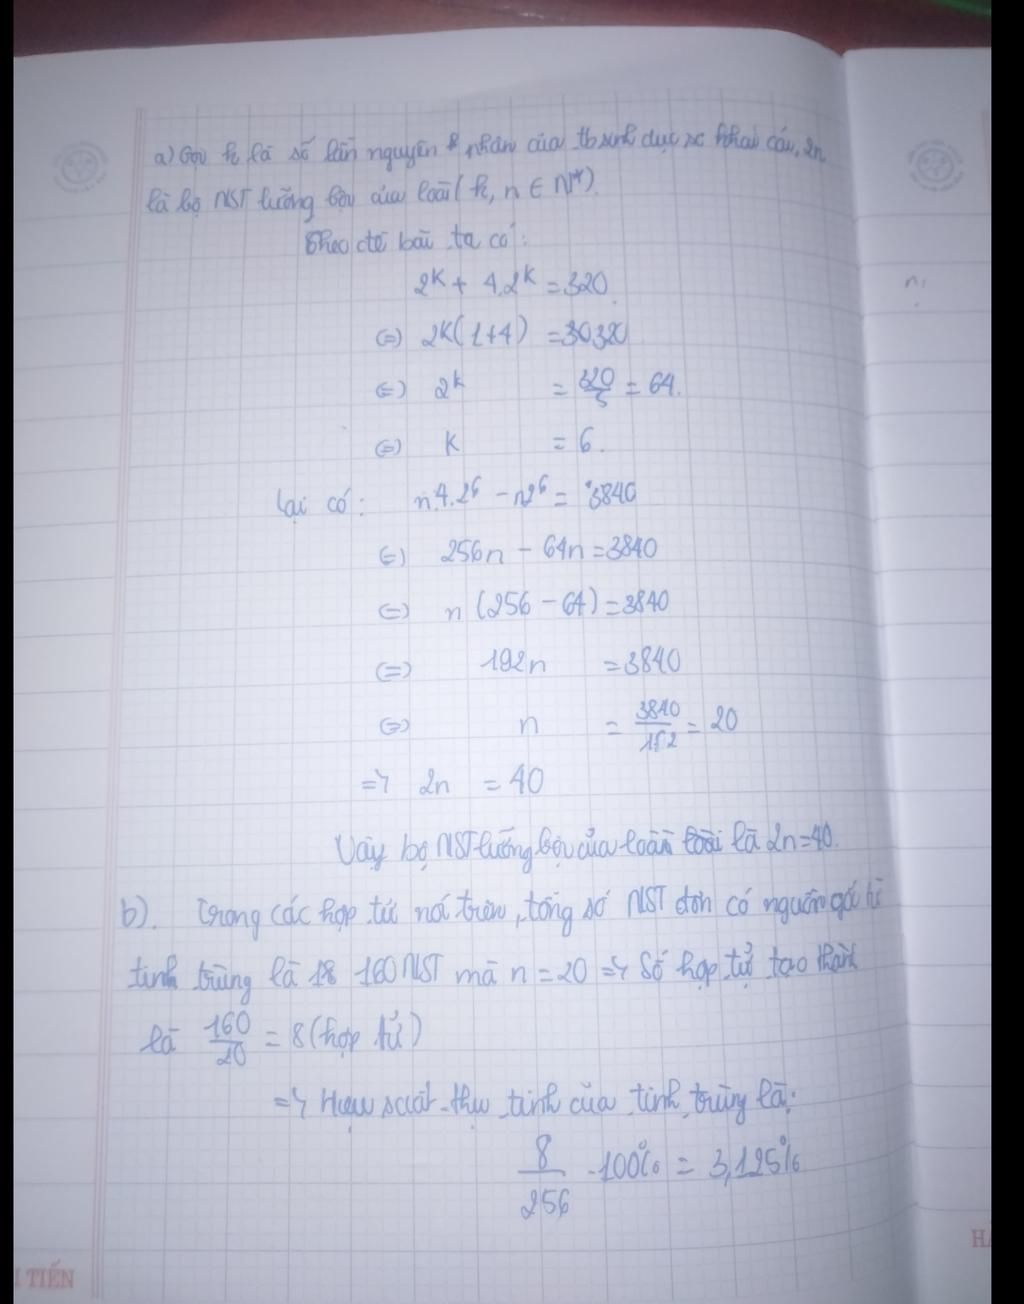 a) Gọi k là số lần nguyên phân của tb sinh dục sơ khai cái, 2n
là bộ NST lưỡng bội của loài (k, n ∈ N*).
Theo đề bài ta có:
2^k + 4.2^k = 320
(=) 2^k(1+4) = 320
(=) 2^k = 320/5 = 64.
(=) k = 6.
Lại có: n.4.2^6 - n2^6 = 3840
(=) 256n - 64n = 3840
(=) n (256 - 64) = 3840
(=) 192n = 3840
(=) n = 3840/192 = 20
=> 2n = 40
Vậy bộ NST lưỡng bội của loài là 2n = 40.
b). Trong các hợp tử nói trên, tổng số NST đơn có nguồn gốc từ
tinh trùng là 160 NST mà n = 20 => Số hợp tử tạo thành
là 160/20 = 8 (hợp tử)
=> Hiệu suất thụ tinh của tinh trùng là:
8/256 . 100% = 3,125%
TIẾN